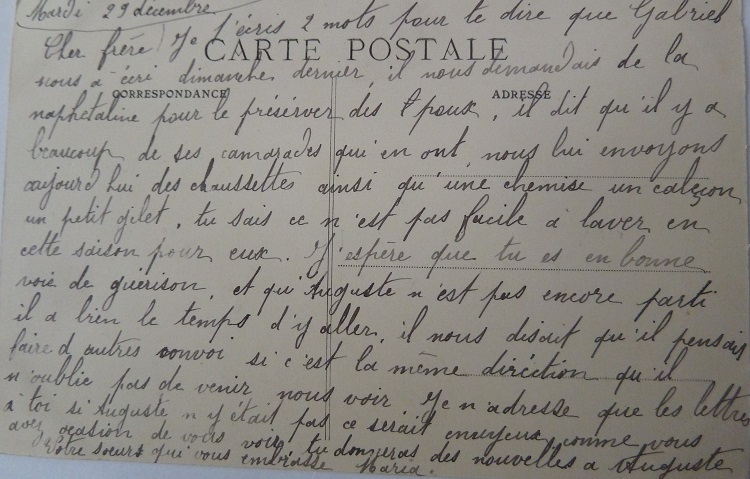 Mardi 29 décembre
Cher frère Je t'écris 2 mots pour te dire que Gabriel
CARTE POSTALE
nous a écri dimanche dernier, il nous demandais de la
CORRESPONDANCE
ADRESSE
naphetaline pour le préserver dés poux, il dit qu'il y a
beaucoup de ses camarades qui en ont, nous lui envoyons
aujourd'hui des chaussettes ainsi qu'une chemise un calçon
un petit gilet, tu sais ce n'est pas facile a laver en
cette saison pour eux. J'espère que tu es en bonne
voie de guérison, et qu'Auguste n'est pas encore parti
il a bien le temps d'y aller, il nous disait qu'il pensait
faire d'autres convoi si c'est la même diréction qu'il
n'oublie pas de venir nous voir Je n'adresse que les lettres
à toi si Auguste n'y était pas ce serait ennuyeux, comme vous
avez ocasion de vous voir, tu donneras des nouvelles a Auguste
Votre soeur qui vous embrasse Maria.